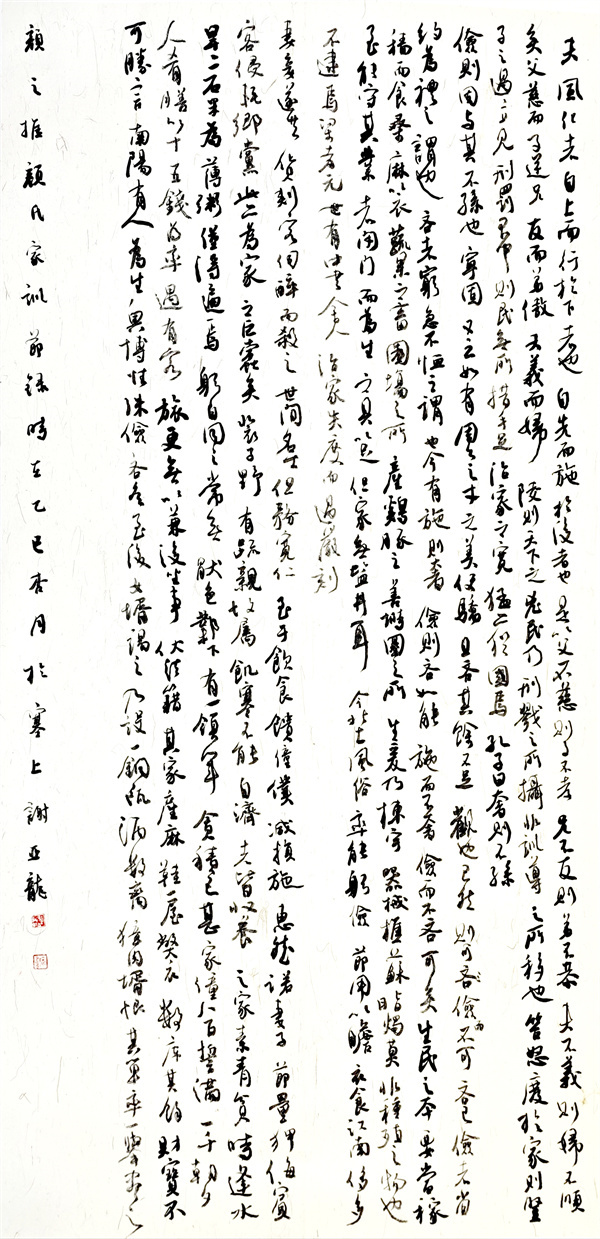 夫風化者自上而行於下者也自先而施於後者也是以父不慈則子不孝兄不友則弟不恭夫不義則婦不順
矣父慈而子逆兄友而弟傲夫義而婦陵則天下之兇民乃刑戮之所攝非訓導之所移也笞怒廢於家則豎
子之過立見刑罰不中則民無所措手足治家之寬猛亦猶國焉孔子曰奢則不孫
儉則固與其不孫也寧固又云如有周公之才之美使驕且吝其餘不足觀也已然則可吝儉而不可吝已儉者省
約為禮之謂也吝者窮急不恤之謂也今有施則奢儉則吝如能施而不奢儉而不吝可矣生民之本要當稼
穡而食桑麻以衣蔬果之畜園場之所產鷄豚之善塒圈之所生爰乃棟宇器械樵蘇脂燭莫非種殖之物也
至能守其業者閉門而為生之具以足但家無鹽井耳今北土風俗率能躬儉節用以贍衣食江南侈多
不逮焉梁孝元世有中書舍人治家失度而過嚴刻
妻妾遂共貨刺客伺醉而殺之世間名士但務寬仁至于飲食饋僮僕減損施惠然諾妻子節量狎侮賓
客侵耗鄉黨此亦為家之巨蠹矣裴子野有疏親故屬飢寒不能自濟者皆收養之家素清貧時逢水
旱二石米為薄粥僅得遍焉躬自同之常無厭色鄴下有一領軍貪積已甚家僮八百誓滿一千朝夕
人肴膳以十五錢為率遇有客旅更無以兼後坐事伏法籍其家產麻鞋一屋弊衣數庫其餘財寶不
可勝言南陽有人為生奧博性殊儉吝冬至後女婿謁之乃設一銅甌酒數臠獐肉婿恨其單率一舉盡之
顏之推顏氏家訓節錄時在乙巳杏月於塞上謝亞龍